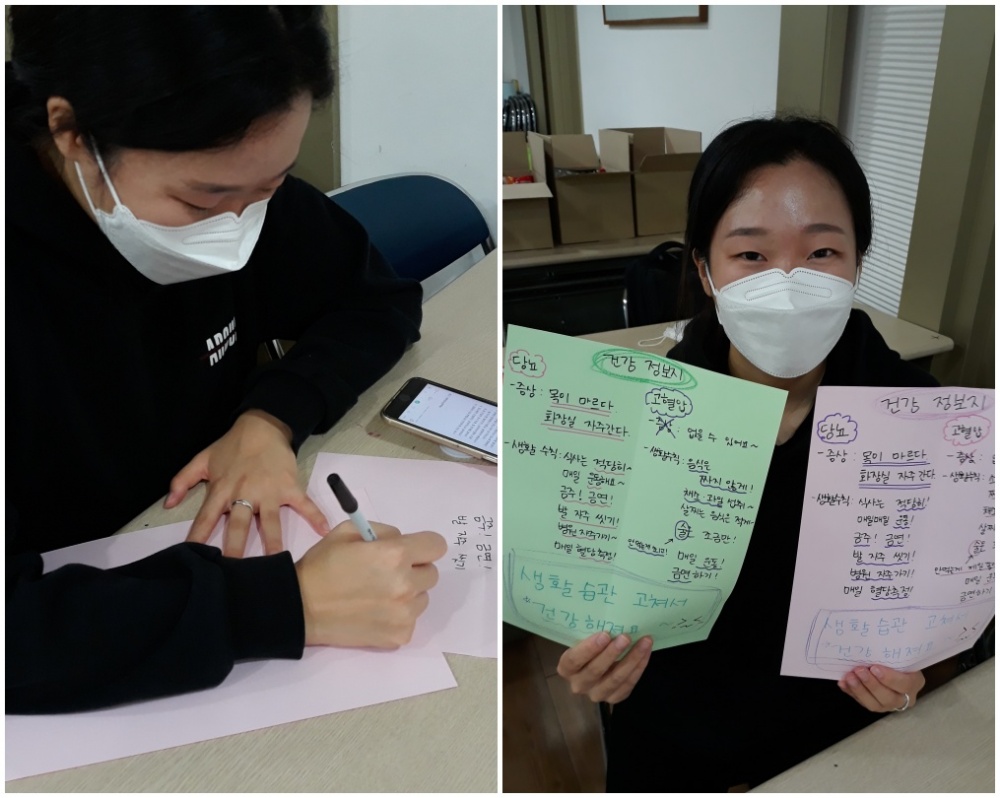 금주! 금연!
발 자주 씻기
건강 정보지
당뇨
-증상 : 목이 마르다.
화장실 자주간다.
-생활 수칙 : 식사는 적당히~
매일 운동해요~
금주! 금연!
발 자주 씻기!
병원 자주가기~
매일 혈당 측정!
고혈압
-증상 : 없을 수 있어요~
-생활수칙 : 음식은
짜지 않게!
채소·과일 섭취~
살찌는 음식은 적게~
술 조금만!
매일 운동!
금연하기!
생활습관 고쳐서
"건강해져요
건강 정보지
당뇨
-증상 : 목이 마르다.
화장실 자주간다.
-생활수칙 : 식사는 적당히!
매일매일 운동!
금주! 금연!
발 자주 씻기!
병원 자주가기!
매일 혈당측정!
고혈압
-증상 :
-생활수칙 :
술
금연하기
생활습관
"건강해져요